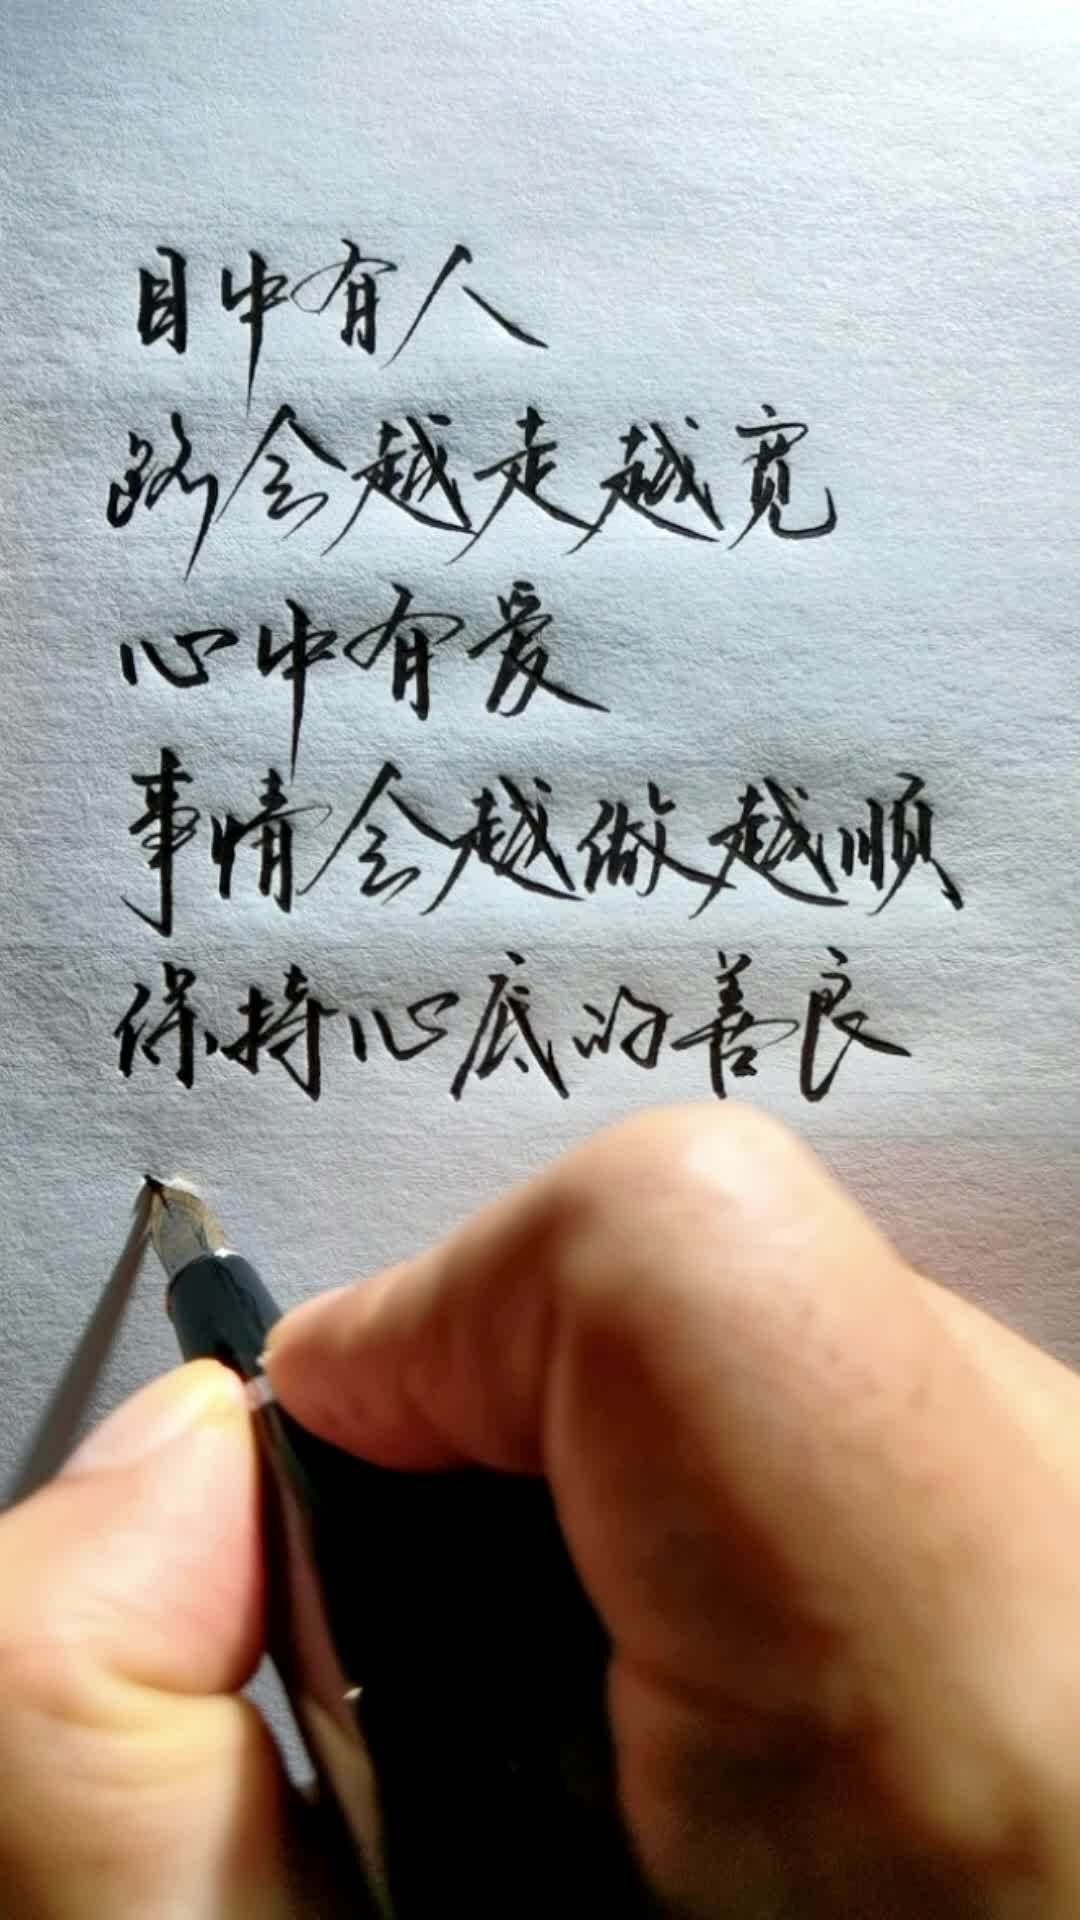 目中有人
路会越走越宽
心中有爱
事情会越做越顺
保持心底的善良